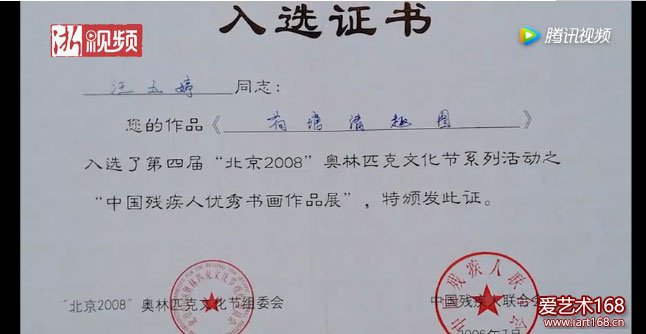 入选证书
浙视频
腾讯视频
汪玉婷 同志:
您的作品《荷塘清趣图》
入选了第四届“北京2008”奥林匹克文化节系列活动之
“中国残疾人优秀书画作品展”,特颁发此证。
“北京2008”奥林匹克文化节组委会
中国残疾人联合会
2006年7月
爱艺术168
www.iart168.cn